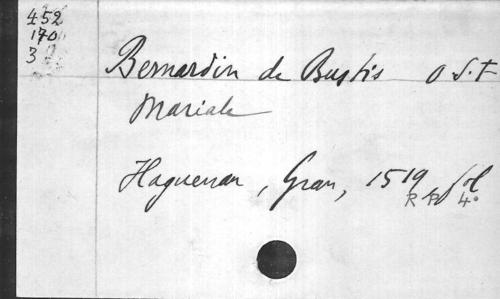 452
170
3
Bernardin de Bustis O.S.F
Mariale
Haguenau, Gran, 1519 fol
R 4°